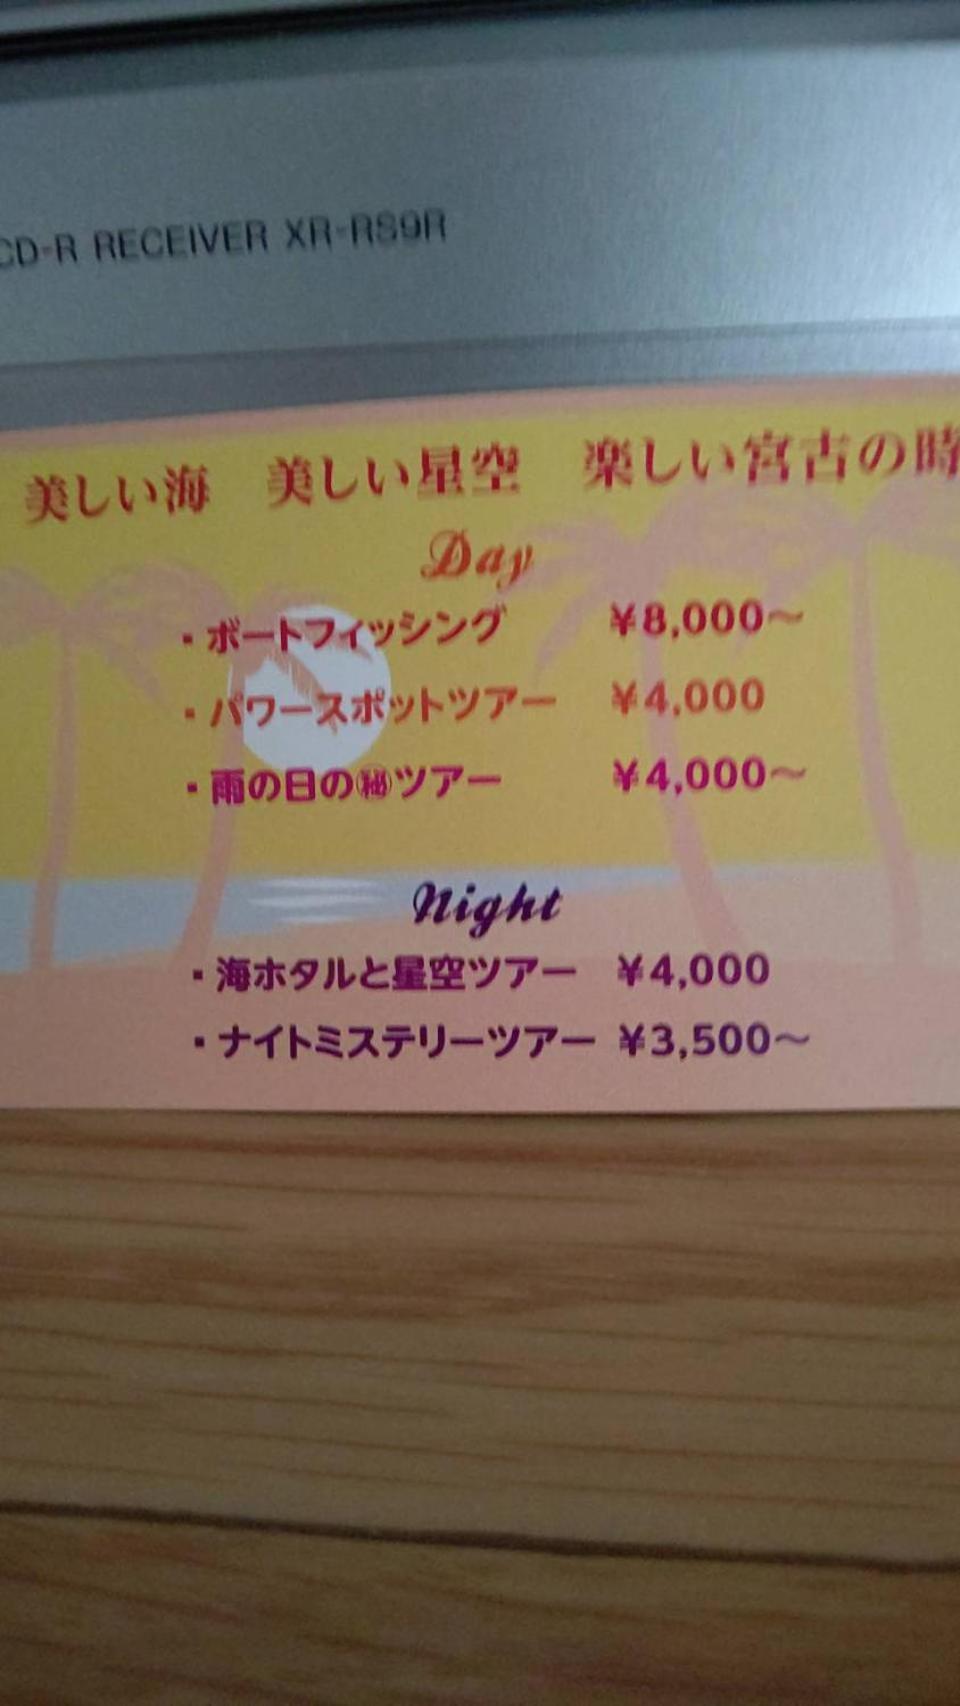 CD-R RECEIVER XR-RS9R
美しい海 美しい星空 楽しい宮古の時
Day
・ボートフィッシング ¥8,000～
・パワースポットツアー ¥4,000
・雨の日の㊙ツアー ¥4,000～
Night
・海ホタルと星空ツアー ¥4,000
・ナイトミステリーツアー ¥3,500～